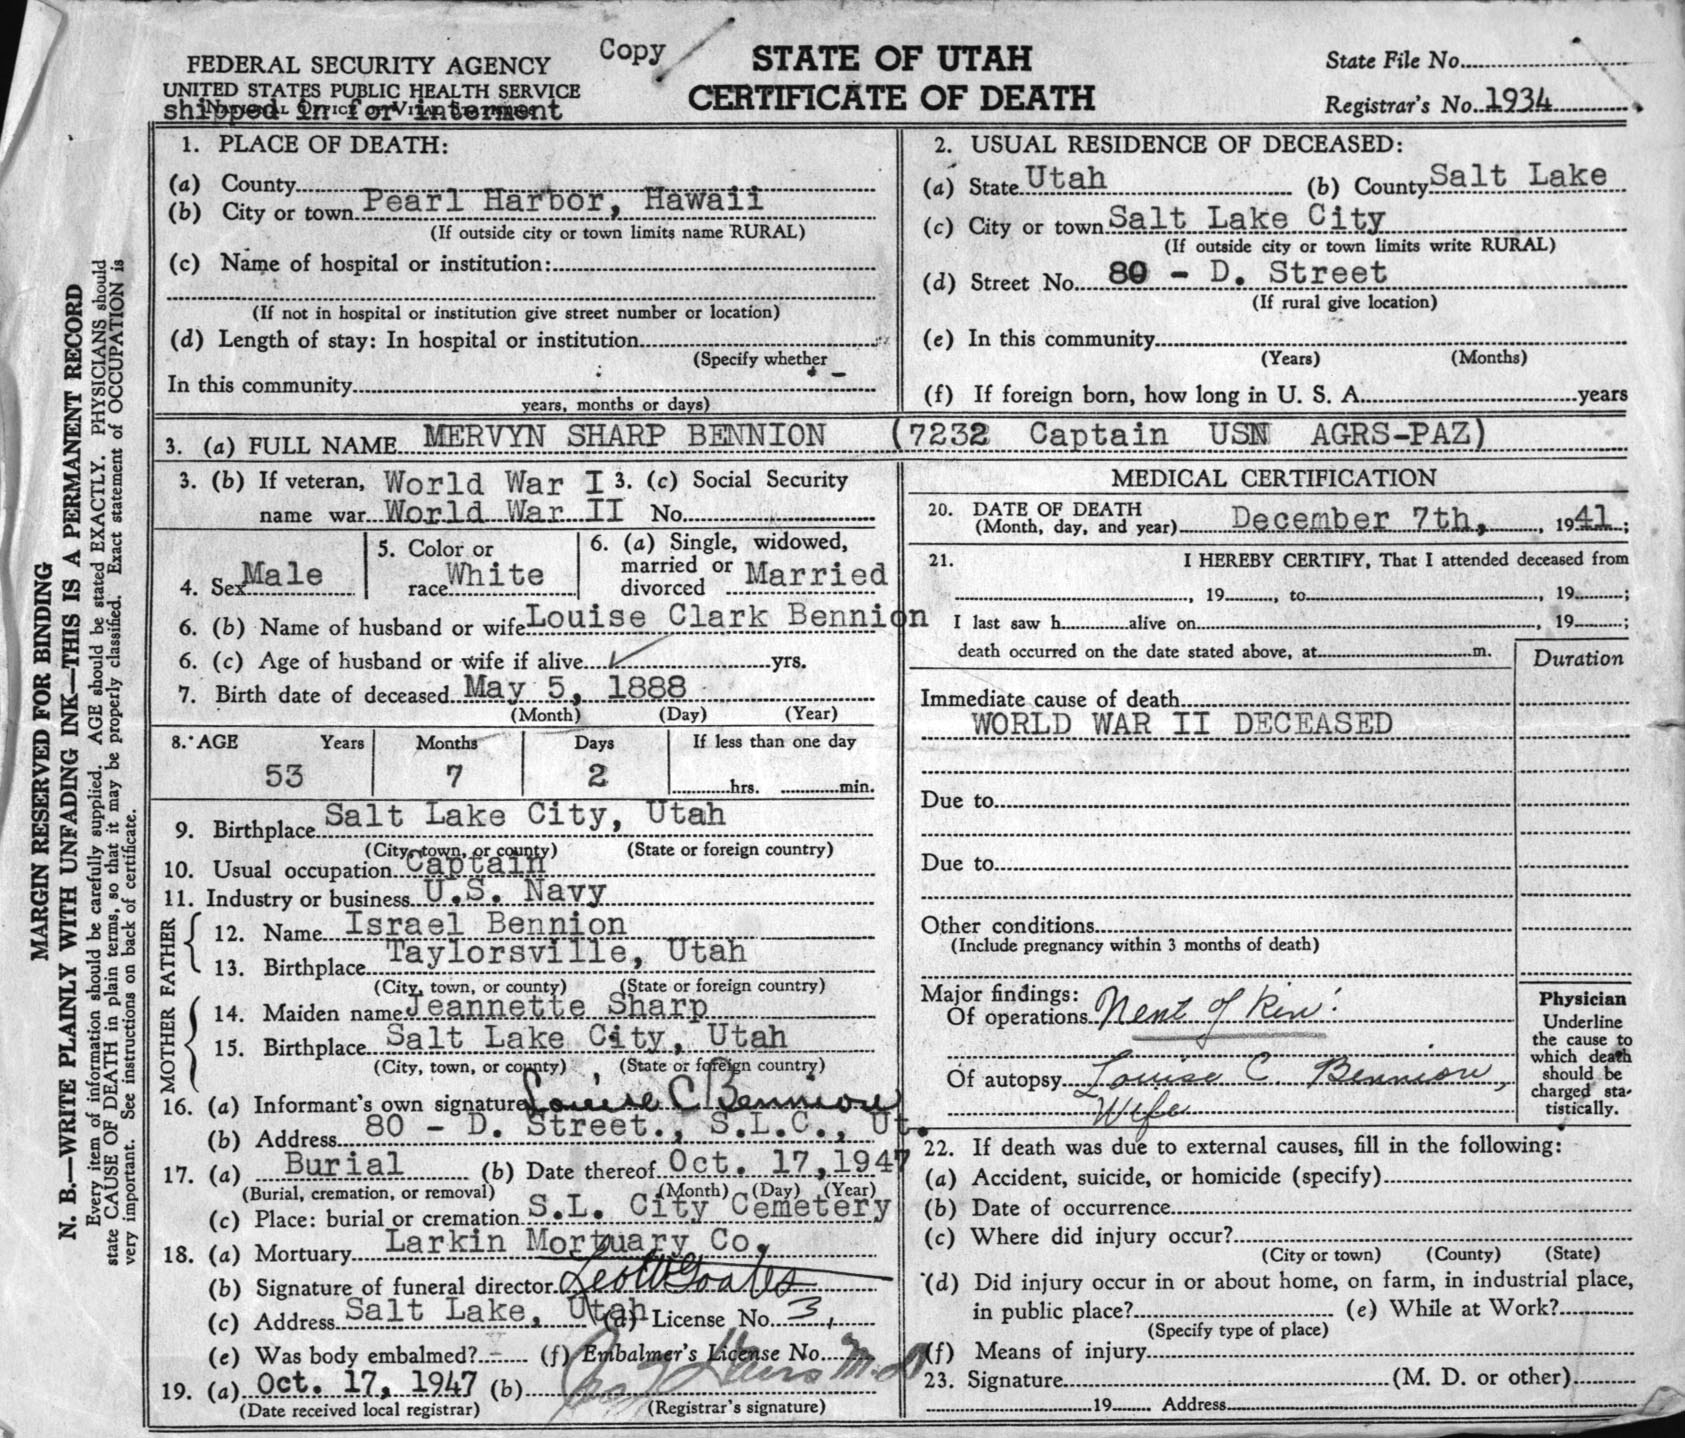 Copy
FEDERAL SECURITY AGENCY
UNITED STATES PUBLIC HEALTH SERVICE
shipped in for interment
STATE OF UTAH
CERTIFICATE OF DEATH
State File No.
Registrar's No. 1934
MARGIN RESERVED FOR BINDING
N. B.—WRITE PLAINLY WITH UNFADING INK—THIS IS A PERMANENT RECORD
Every item of information should be carefully supplied. AGE should be stated EXACTLY. PHYSICIANS should
state CAUSE OF DEATH in plain terms, so that it may be properly classified. Exact statement of OCCUPATION is
very important. See instructions on back of certificate.
1. PLACE OF DEATH:
(a) County
(b) City or town Pearl Harbor, Hawaii
(If outside city or town limits name RURAL)
(c) Name of hospital or institution:
(If not in hospital or institution give street number or location)
(d) Length of stay: In hospital or institution
(Specify whether
In this community
years, months or days)
2. USUAL RESIDENCE OF DECEASED:
(a) State Utah (b) County Salt Lake
(c) City or town Salt Lake City
(If outside city or town limits write RURAL)
(d) Street No. 80 - D. Street
(If rural give location)
(e) In this community
(Years) (Months)
(f) If foreign born, how long in U. S. A. years
3. (a) FULL NAME MERVYN SHARP BENNION (7232 Captain USN AGRS-PAZ)
3. (b) If veteran, World War I 3. (c) Social Security
name war World War II No.
4. Sex Male
5. Color or
race White
6. (a) Single, widowed,
married or
divorced Married
6. (b) Name of husband or wife Louise Clark Bennion
6. (c) Age of husband or wife if alive yrs.
7. Birth date of deceased May 5, 1888
(Month) (Day) (Year)
8. AGE Years Months Days If less than one day
53 7 2 hrs. min.
9. Birthplace Salt Lake City, Utah
(City, town, or county) (State or foreign country)
10. Usual occupation Captain
11. Industry or business U.S. Navy
FATHER
12. Name Israel Bennion
13. Birthplace Taylorsville, Utah
(City, town, or county) (State or foreign country)
MOTHER
14. Maiden name Jeannette Sharp
15. Birthplace Salt Lake City, Utah
(City, town, or county) (State or foreign country)
16. (a) Informant's own signature Louise C Bennion
(b) Address 80 - D. Street., S.L.C., Ut.
17. (a) Burial (b) Date thereof Oct. 17, 1947
(Burial, cremation, or removal) (Month) (Day) (Year)
(c) Place: burial or cremation S.L. City Cemetery
18. (a) Mortuary Larkin Mortuary Co.
(b) Signature of funeral director
(c) Address Salt Lake, Utah (d) License No. 3,
(e) Was body embalmed? (f) Embalmer's License No.
19. (a) Oct. 17, 1947 (b) M.D
(Date received local registrar) (Registrar's signature)
MEDICAL CERTIFICATION
20. DATE OF DEATH
(Month, day, and year) December 7th, , 1941 ;
21. I HEREBY CERTIFY, That I attended deceased from
, 19 , to , 19 ;
I last saw h alive on , 19 ;
death occurred on the date stated above, at m.
Duration
Immediate cause of death
WORLD WAR II DECEASED
Due to
Due to
Other conditions
(Include pregnancy within 3 months of death)
Major findings:
Of operations Next of Kin:
Of autopsy Louise C. Bennion,
Wife
Physician
Underline
the cause to
which death
should be
charged sta-
tistically.
22. If death was due to external causes, fill in the following:
(a) Accident, suicide, or homicide (specify)
(b) Date of occurrence
(c) Where did injury occur?
(City or town) (County) (State)
(d) Did injury occur in or about home, on farm, in industrial place,
in public place? (e) While at Work?
(Specify type of place)
(f) Means of injury
23. Signature (M. D. or other)
19 Address